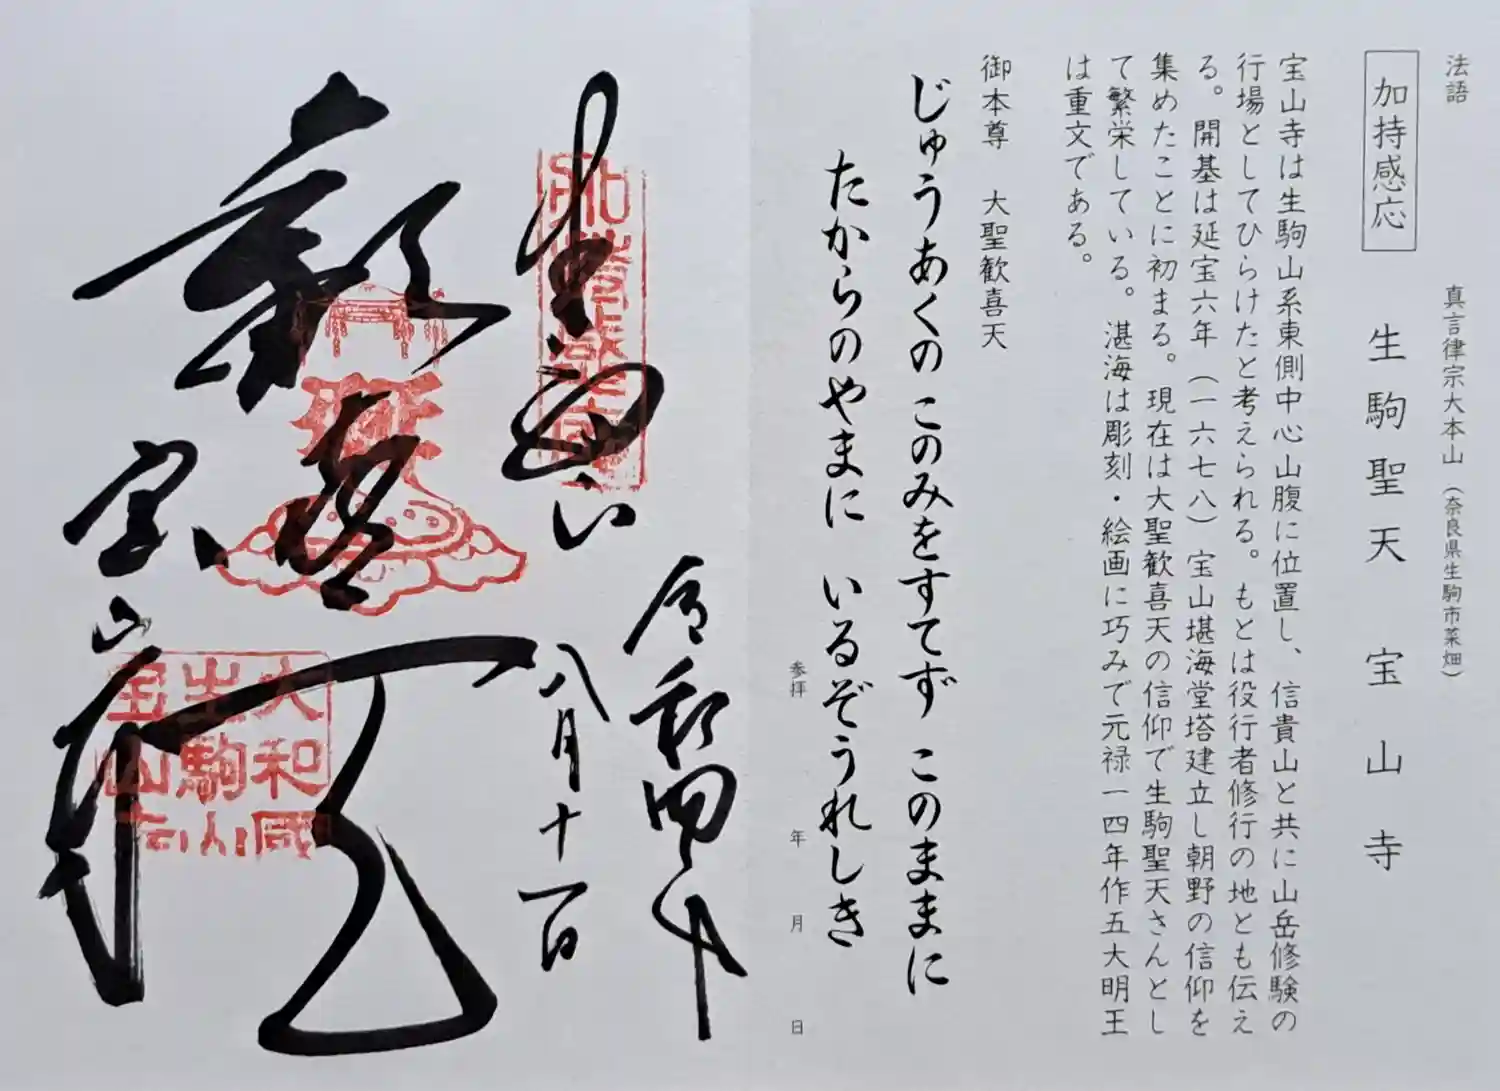 法語
加持感応
真言律宗大本山（奈良県生駒市菜畑）
生駒聖天　宝山寺
宝山寺は生駒山系東側中心山腹に位置し、信貴山と共に山岳修験の
行場としてひらけたと考えられる。もとは役行者修行の地とも伝え
る。開基は延宝六年（一六七八）宝山堪海堂塔建立し朝野の信仰を
集めたことに初まる。現在は大聖歓喜天の信仰で生駒聖天さんとし
て繁栄している。湛海は彫刻・絵画に巧みで元禄一四年作五大明王
は重文である。
御本尊　大聖歓喜天
じゅうあくの このみをすてず このままに
たからのやまに いるぞうれしき
参拝　年　月　日
令和四年
八月十一日
生駒山
歓喜天
宝山寺
大和國
生駒山
宝山寺